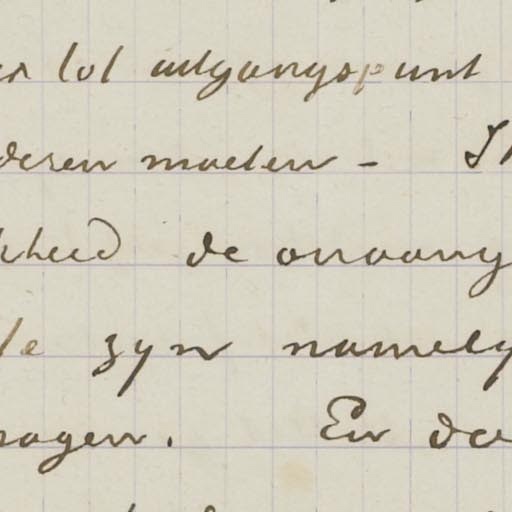 tot uitgangspunt
moeten –
kheid de onaang
te zyn namely
ragen. En da